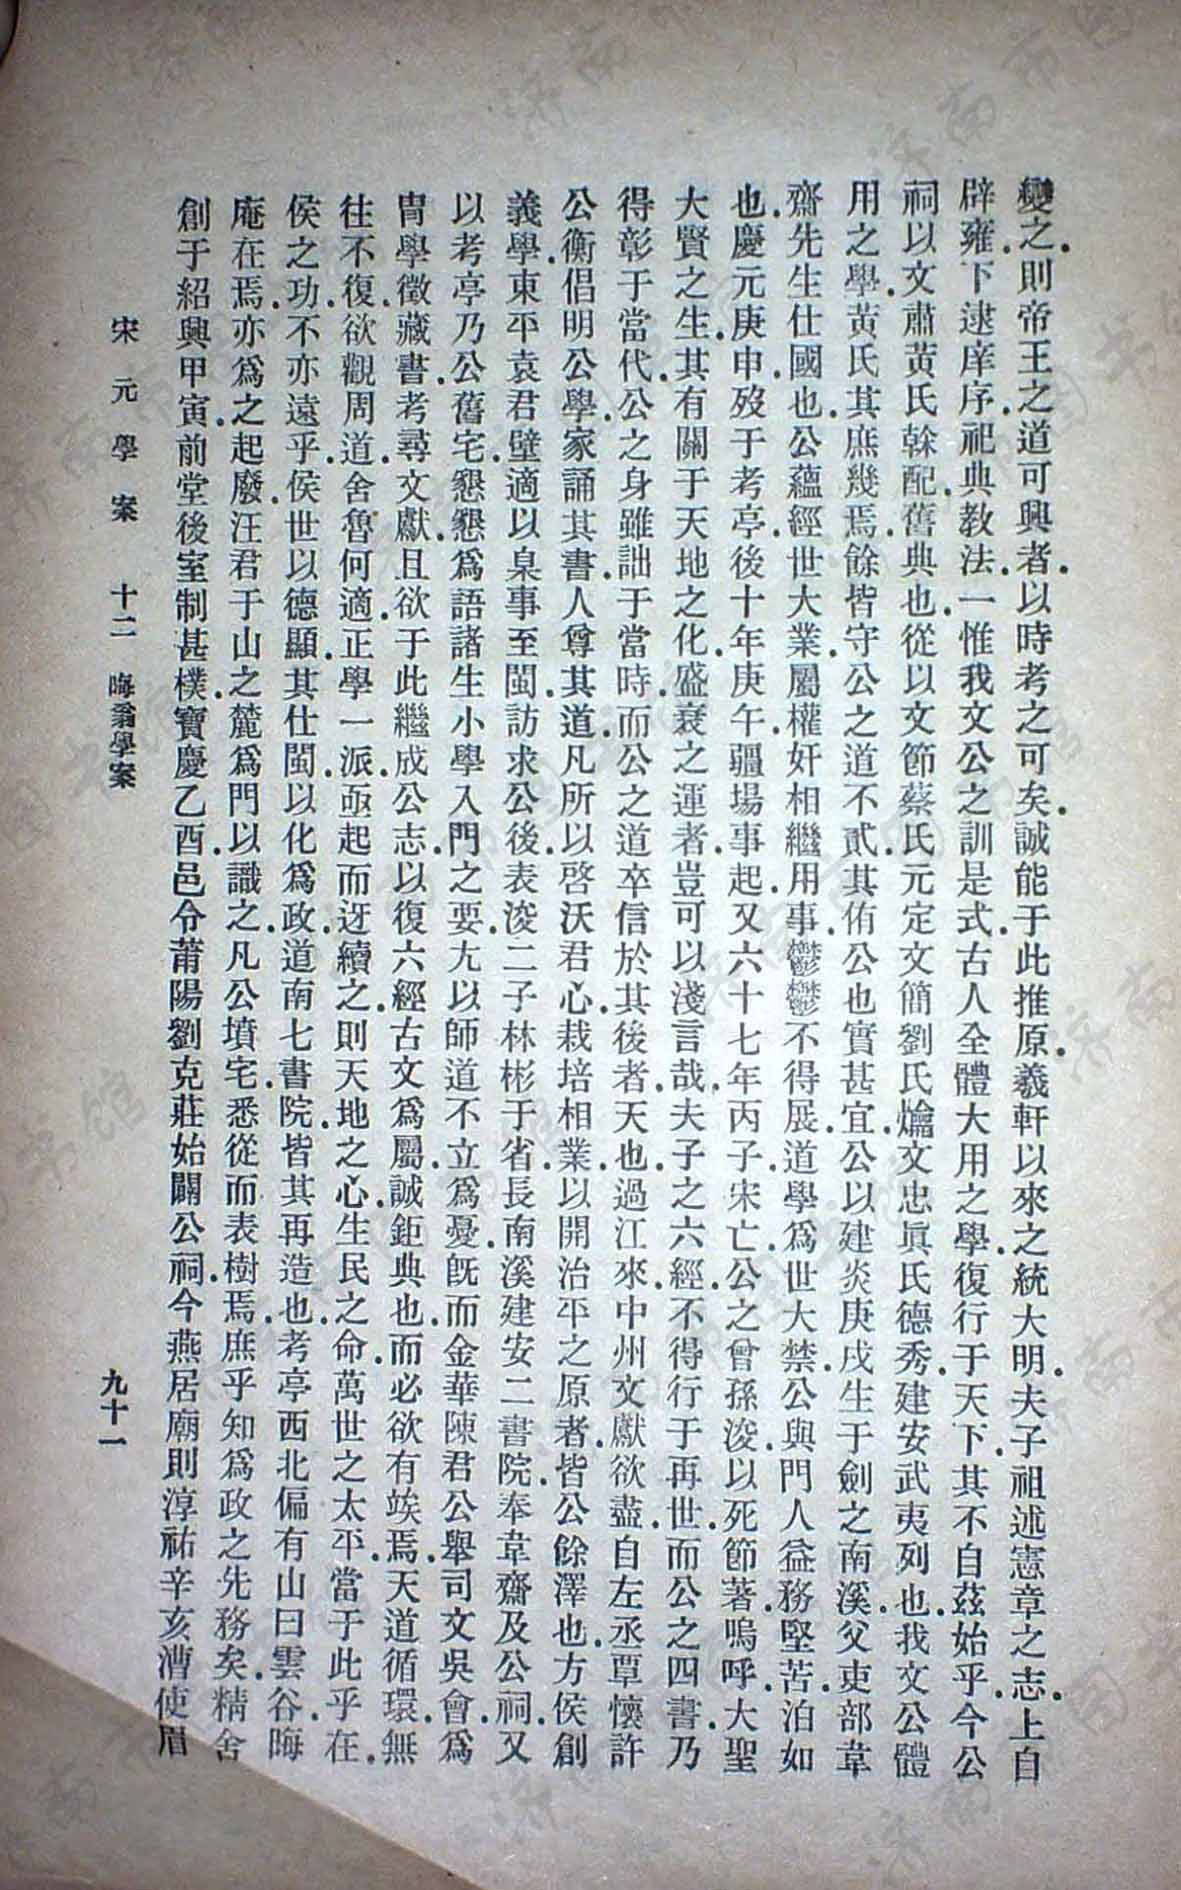 變之則帝王之道可興者以時考之可矣誠能于此推原羲軒以來之統大明夫子祖述憲章之志上自
辟雍下逮庠序祀典教法一惟我文公之訓是式古人全體大用之學復行于天下其不自茲始乎今公
祠以文肅黃氏榦配舊典也從以文節蔡氏元定文簡劉氏爚文忠眞氏德秀建安武夷列也我文公體
用之學黃氏其庶幾焉餘皆守公之道不貳其侑公也實甚宜公以建炎庚戌生于劍之南溪父吏部韋
齋先生仕國也公蘊經世大業屬權奸相繼用事鬱鬱不得展道學爲世大禁公與門人益務堅苦泊如
也慶元庚申歿于考亭後十年庚午疆場事起又六十七年丙子宋亡公之曾孫浚以死節著嗚呼大聖
大賢之生其有關于天地之化盛衰之運者豈可以淺言哉夫子之六經不得行于再世而公之四書乃
得彰于當代公之身雖詘于當時而公之道卒信於其後者天也過江來中州文獻欲盡自左丞覃懷許
公衡倡明公學家誦其書人尊其道凡所以啓沃君心栽培相業以開治平之原者皆公餘澤也方侯創
義學東平袁君璧適以臬事至閩訪求公後表浚二子林彬于省長南溪建安二書院奉韋齋及公祠又
以考亭乃公舊宅懇懇爲語諸生小學入門之要尤以師道不立爲憂旣而金華陳君公舉司文吳會爲
冑學徵藏書考尋文獻且欲于此繼成公志以復六經古文爲屬誠鉅典也而必欲有竢焉天道循環無
往不復欲觀周道舍魯何適正學一派亟起而迓續之則天地之心生民之命萬世之太平當于此乎在
侯之功不亦遠乎侯世以德顯其仕閩以化爲政道南七書院皆其再造也考亭西北偏有山曰雲谷晦
庵在焉亦爲之起廢汪君于山之麓爲門以識之凡公墳宅悉從而表樹焉庶乎知爲政之先務矣精舍
創于紹興甲寅前堂後室制甚樸寶慶乙酉邑令莆陽劉克莊始闢公祠今燕居廟則淳祐辛亥漕使眉
宋元學案 十二 晦翁學案 九十一